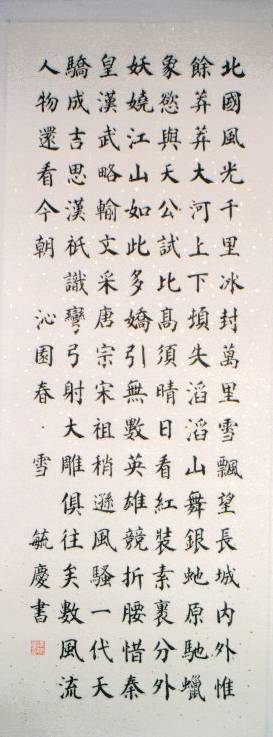 北國風光千里冰封萬里雪飄望長城內外惟
餘莽莽大河上下頃失滔滔山舞銀虵原馳蠟
象慾與天公試比高須晴日看紅裝素裹分外
妖嬈江山如此多嬌引無數英雄競折腰惜秦
皇漢武略輸文采唐宗宋祖稍遜風騷一代天
驕成吉思漢祇識彎弓射大雕俱往矣數風流
人物還看今朝 沁園春·雪 毓慶書